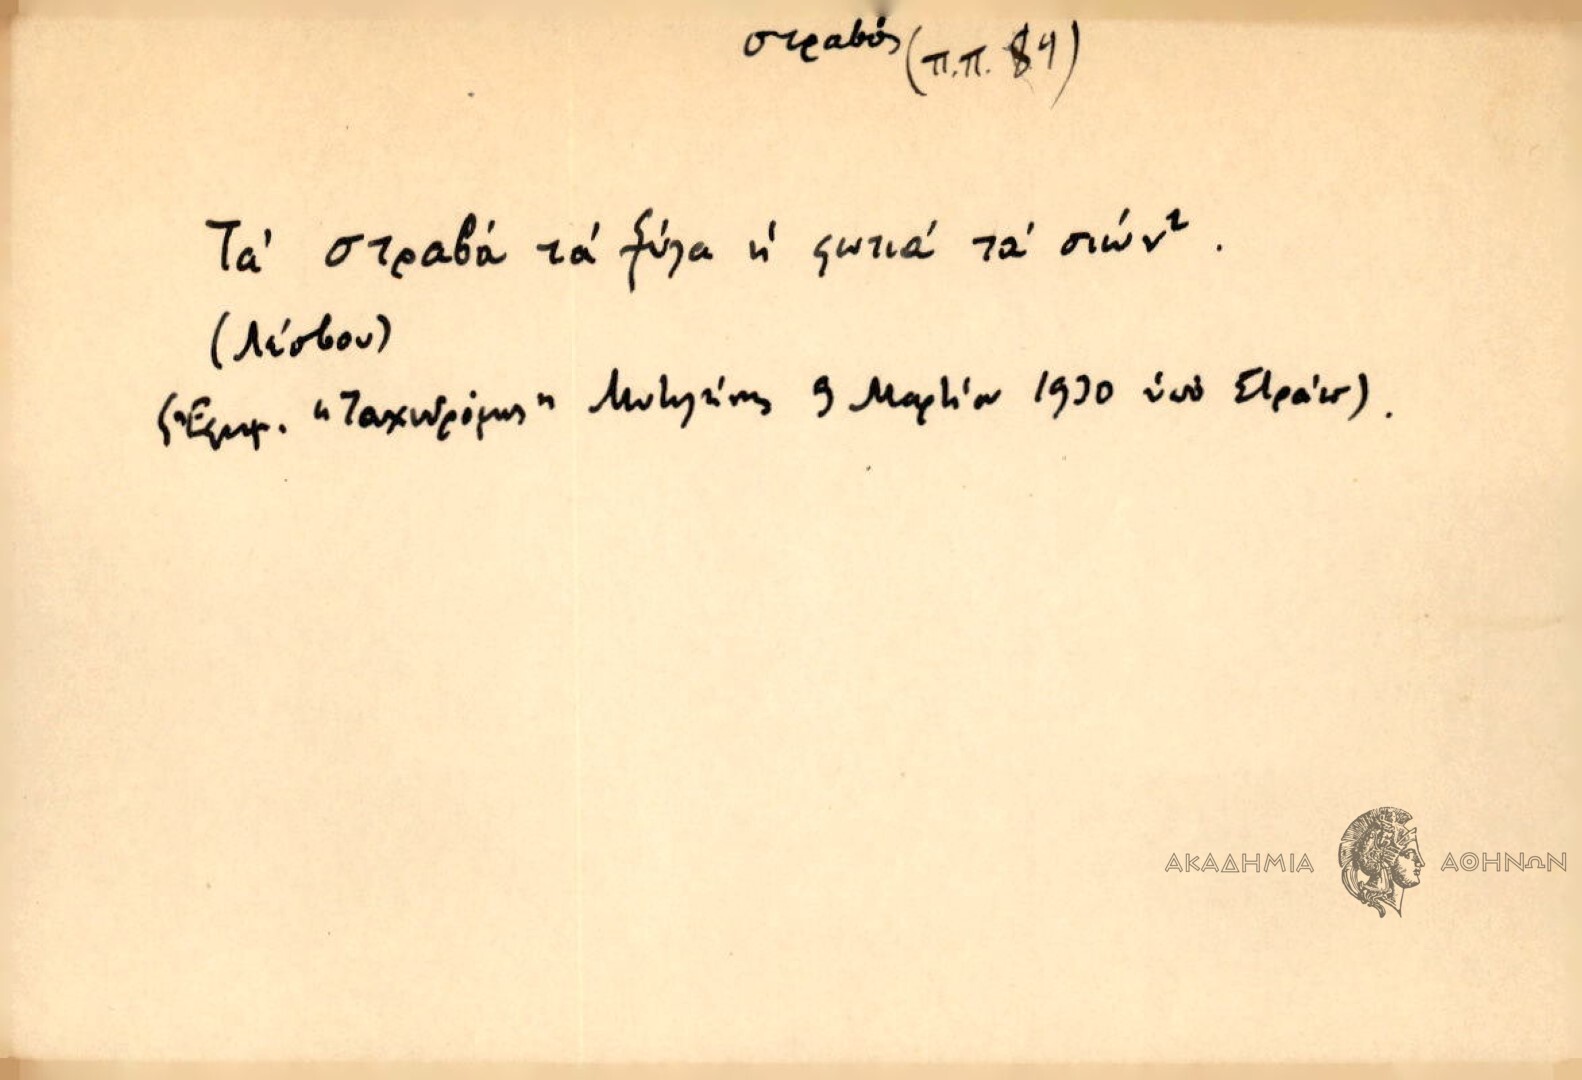 στραβός (π.π. 84)
Τά στραβά τά ξύλα ἡ φωτιά τά σιών'.
(Λέσβου)
(Ἐφημ. "Ταχυδρόμος" Μυτιλήνης 9 Μαρτίου 1930 ὑπό
ΑΚΑΔΗΜΙΑ ΑΘΗΝΩΝ